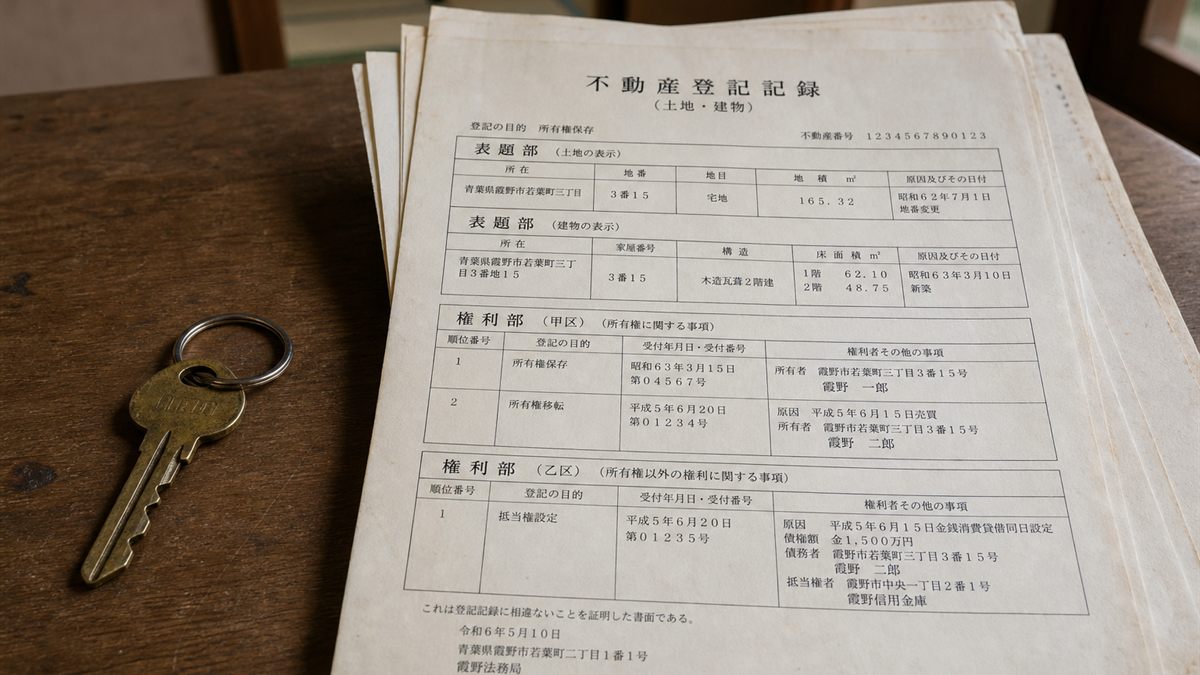 不動産登記記録
（土地・建物）
登記の目的　所有権保存
不動産番号　1234567890123
表題部　（土地の表示）
所在　地番　地目　地積　㎡　原因及びその日付
青葉県霞野市若葉町三丁目　3番15　宅地　165.32　昭和62年7月1日
地番変更
表題部　（建物の表示）
所在　家屋番号　構造　床面積　㎡　原因及びその日付
青葉県霞野市若葉町三丁　3番15　木造瓦葺2階建　1階　62.10　昭和63年3月10日
目3番地15　2階　48.75　新築
権利部　（甲区）　（所有権に関する事項）
順位番号　登記の目的　受付年月日・受付番号　権利者その他の事項
1　所有権保存　昭和63年3月15日　所有者　霞野市若葉町三丁目3番15号
第04567号　霞野　一郎
2　所有権移転　平成5年6月20日　原因　平成5年6月15日売買
第01234号　所有者　霞野市若葉町三丁目3番15号
霞野　二郎
権利部　（乙区）　（所有権以外の権利に関する事項）
順位番号　登記の目的　受付年月日・受付番号　権利者その他の事項
1　抵当権設定　平成5年6月20日　原因　平成5年6月15日金銭消費貸借同日設定
第01235号　債権額　金1,500万円
債務者　霞野市若葉町三丁目3番15号
霞野　二郎
抵当権者　霞野市中央一丁目2番1号
霞野信用金庫
これは登記記録に相違ないことを証明した書面である。
令和6年5月10日
青葉県霞野市若葉町二丁目1番1号
霞野法務局